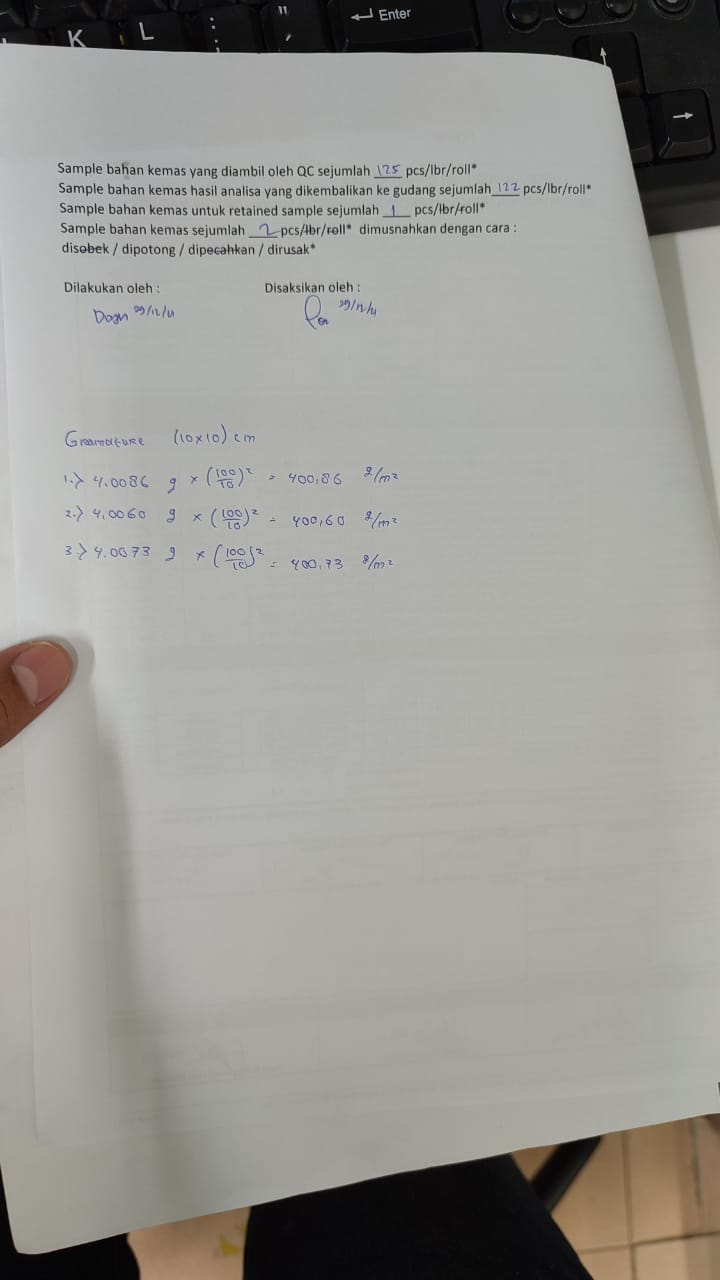 K
L
:
;
"
'
Enter
Sample bahan kemas yang diambil oleh QC sejumlah 125 pcs/lbr/roll*
Sample bahan kemas hasil analisa yang dikembalikan ke gudang sejumlah 122 pcs/lbr/roll*
Sample bahan kemas untuk retained sample sejumlah 1 pcs/lbr/roll*
Sample bahan kemas sejumlah 2 pcs/lbr/roll* dimusnahkan dengan cara :
disobek / dipotong / dipecahkan / dirusak*
Dilakukan oleh :
Disaksikan oleh :
(10x10) cm
1.> 4.0086 g × (100/10)² = 400,86 g/m²
2.> 4,0060 g × (100/10)² = 400,60 g/m²
3> 4.0073 g × (100/10)² = 400,73 g/m²